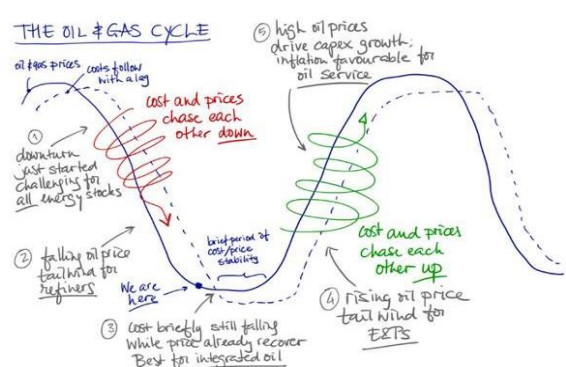 THE OIL & GAS CYCLE
oil & gas prices
costs follow
with a lag
cost and prices
chase each
other down
① downturn
just started
challenging for
all energy stocks
② falling oil price
tailwind for
refiners
We are
here
brief period of
cost/price
stability
③ cost briefly still falling
while price already recover
Best for integrated oil
④ rising oil price
tail wind for
E&Ps
cost and prices
chase each
other up
⑤ high oil prices
drive capex growth;
inflation favourable for
oil service